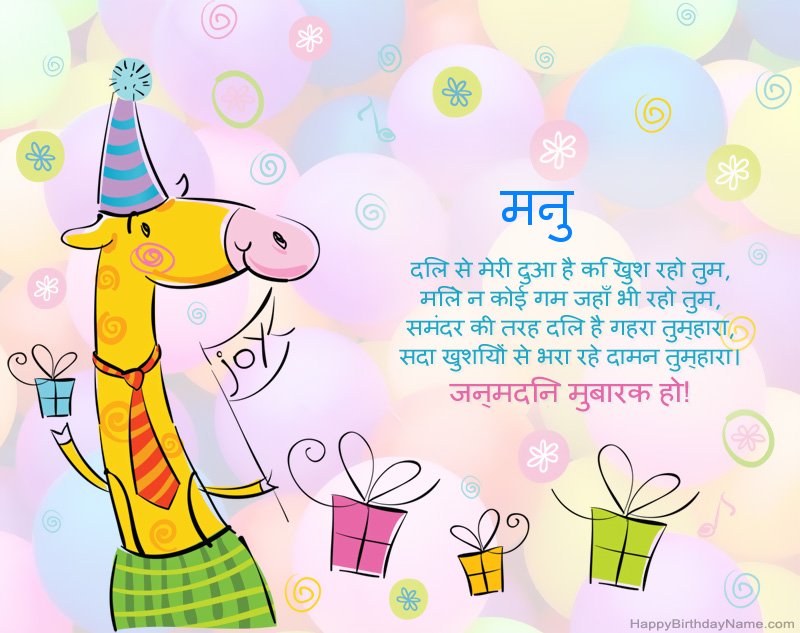 मनु
दिल से मेरी दुआ है कि खुश रहो तुम,
मिले न कोई गम जहाँ भी रहो तुम,
समंदर की तरह दिल है गहरा तुम्हारा,
सदा खुशियों से भरा रहे दामन तुम्हारा।
जन्मदिन मुबारक हो!
joy
HappyBirthdayName.com